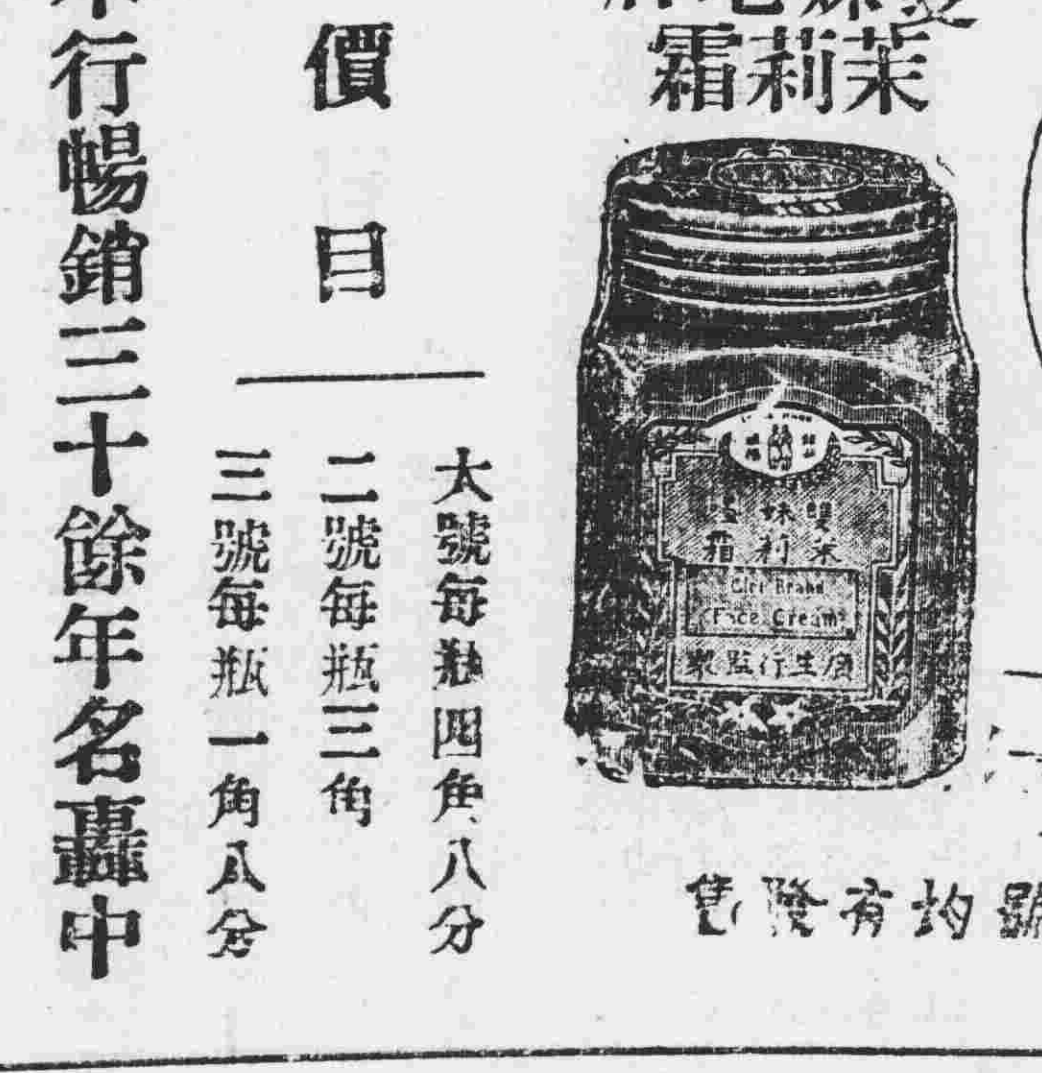 茉莉霜
雙妹
茉莉霜
Girl Brand
Face Cream
廣生行監製
均有發售
價目
大號每瓶四角八分
二號每瓶三角
三號每瓶一角八分
行暢銷三十餘年名轟中